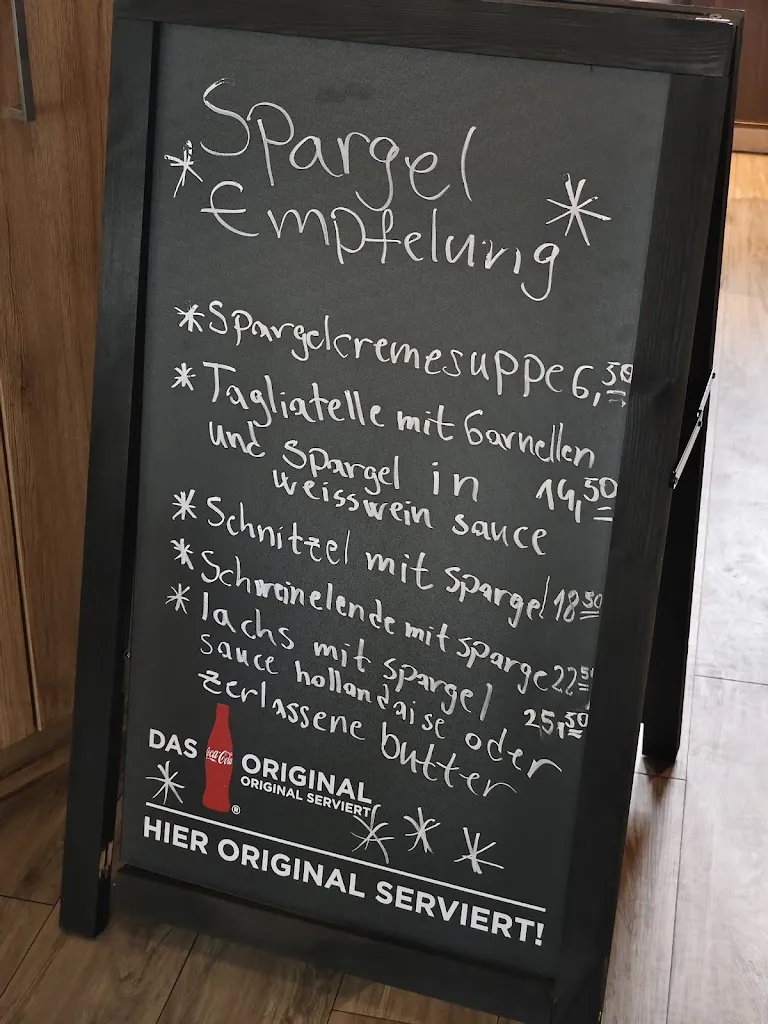 Spargel
Empfelung
* Spargelcremesuppe 6,50
* Tagliatelle mit Garnellen
und Spargel in 19,50
weisswein sauce
* Schnitzel mit spargel 18,50
* Schweinelende mit sparge 22,50
* lachs mit spargel 25,50
sauce hollandaise oder
zerlassene butter
DAS Coca-Cola ORIGINAL
ORIGINAL SERVIERT
HIER ORIGINAL SERVIERT!